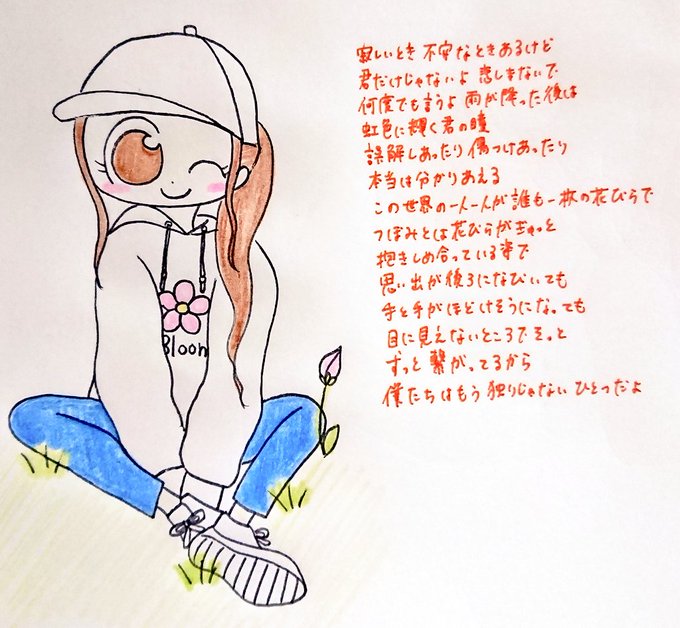 寂しいとき 不安なときあるけど
君だけじゃないよ 悲しまないで
何度でも言うよ 雨が降った後は
虹色に輝く君の瞳
誤解しあったり傷つけあったり
本当は分かりあえる
この世界の一人一人が誰も一枚の花びらで
つぼみとは花びらがぎゅっと
抱きしめ合っている姿で
思い出が後ろになびいても
手と手がほどけそうになっても
目に見えないところでそっと
ずっと繋がってるから
僕たちはもう独りじゃない ひとつだよ
Bloom